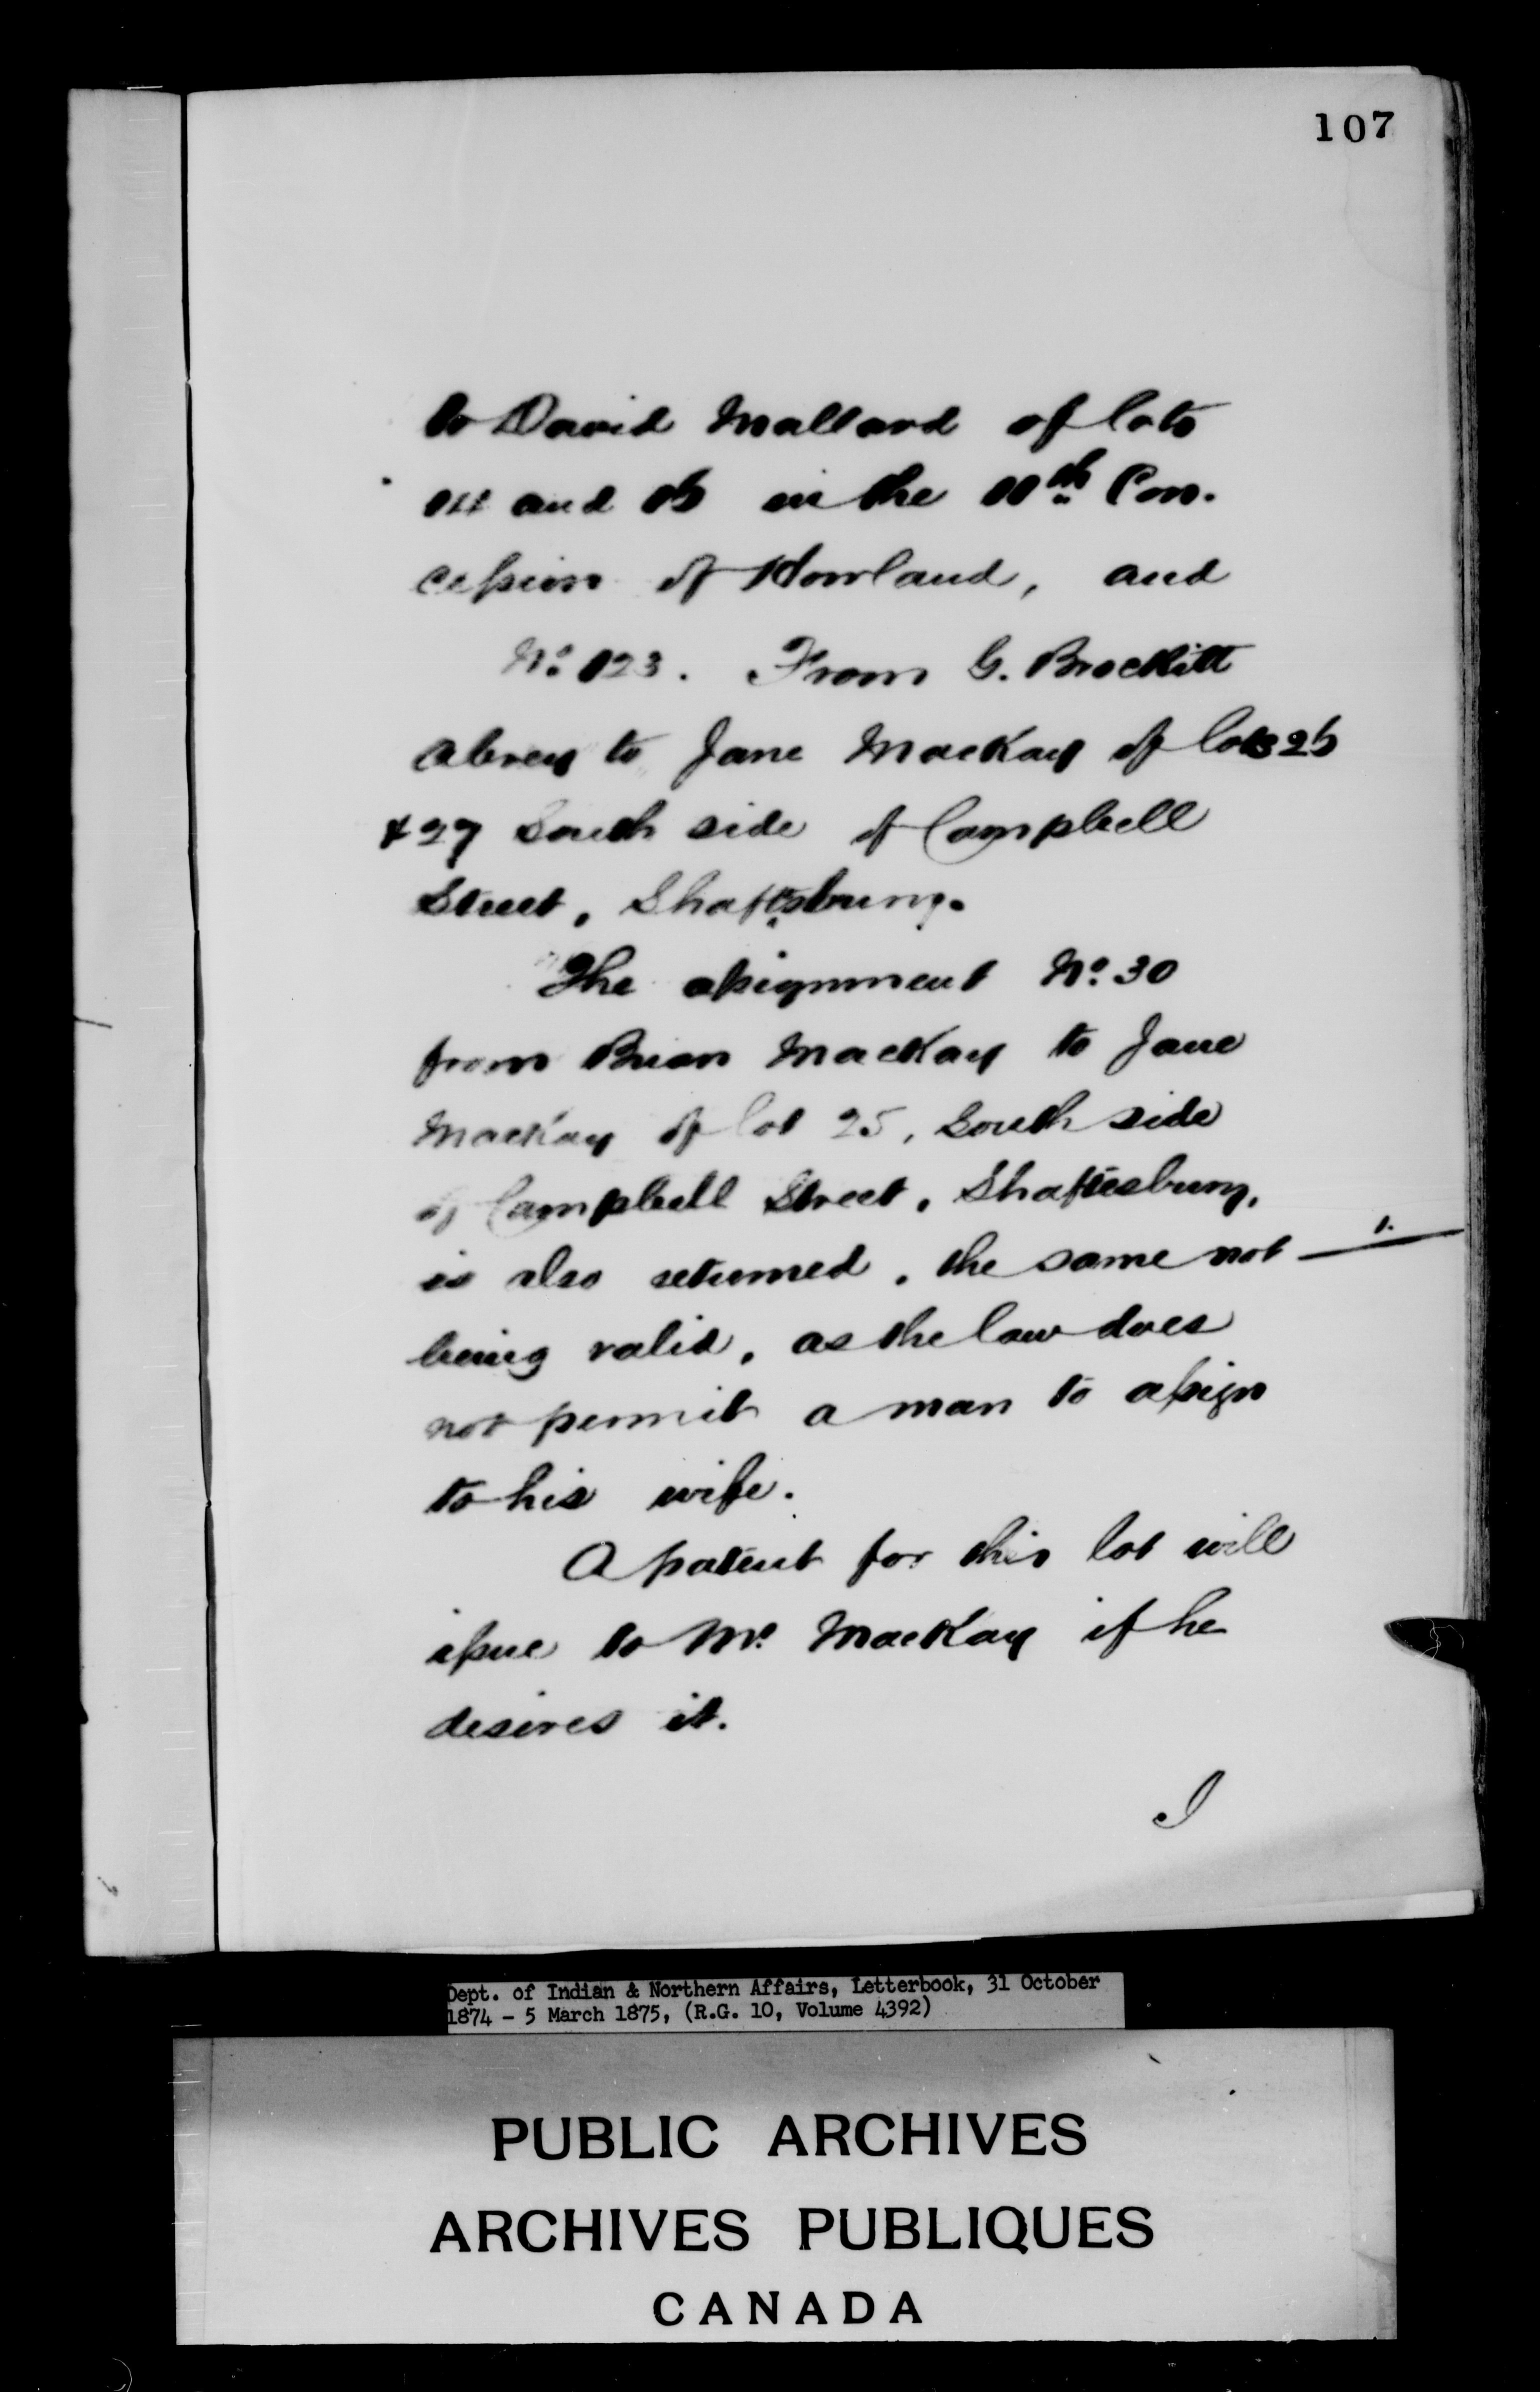 107
to David Mallard of lots
14 and 15 in the 11th Con-
cession of Howland, and
No. 123. From G. Brockitt
Abrey to Jane MacKay of lots 26
& 27 South side of Campbell
Street, Shaftsbury.
The assignment No. 30
from Brian MacKay to Jane
MacKay of lot 25, South side
of Campbell Street, Shaftesbury,
is also returned, the same not
being valid, as the law does
not permit a man to assign
to his wife.
A patent for this lot will
issue to Mr. MacKay if he
desires it.
I
Dept. of Indian & Northern Affairs, Letterbook, 31 October
1874 - 5 March 1875, (R.G. 10, Volume 4392)
PUBLIC ARCHIVES
ARCHIVES PUBLIQUES
CANADA